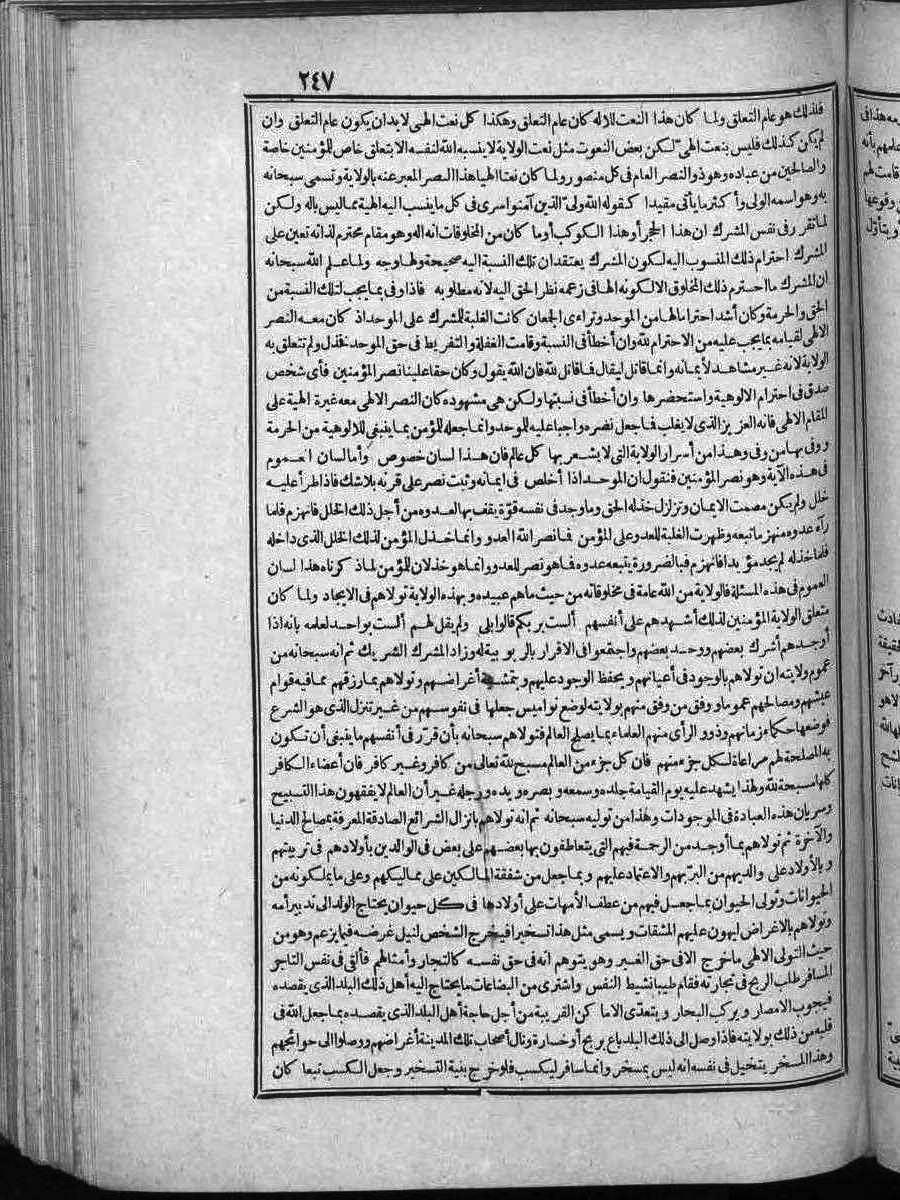 ٢٤٧
فلذلك هو عام التعلق ولما كان هذا النعت للاله كان عام التعلق وهكذا كل نعت الهى لا بد ان يكون عام التعلق وان
لم يكن كذلك فليس بنعت الهى لكن بعض النعوت مثل نعت الولاية لا ينسبه الله لنفسه الا بتعلق خاص للمؤمنين خاصة
والصالحين من عباده وهو ذو النصر العام فى كل منصور ولما كان نعتا الهيا هذا النصر المعبر عنه بالولاية وتسمى سبحانه
به وهو اسمه الولى وأكثر ما يأتى مقيدا كقوله الله ولىّ الذين آمنوا سرى فى كل ما ينسب اليه الهية مما ليس باله ولكن
لما تقرر فى نفس المشرك ان هذا الحجر أو هذا الكوكب أو ما كان من المخلوقات انه اله وهو مقام محترم لذاته تعين على
المشرك احترام ذلك المنسوب اليه لكون المشرك يعتقد ان تلك النسبة اليه صحيحة ولها وجه ولما علم الله سبحانه
ان المشرك ما احترم ذلك المخلوق الا لكونه الها فى زعمه نظر الحق اليه لانه مطلوبه فاذا وفى بما يجب لتلك النسبة من
الحق والحرمة وكان أشد احتراما لها من الموحد وتراءى الجمعان كانت الغلبة للمشرك على الموحد اذ كان معه النصر
الالهى لقيامه بما يجب عليه من الاحترام لله وان أخطأ فى النسبة وقامت الغفلة والتفريط فى حق الموحد فخذل ولم تتعلق به
الولاية لانه غير مشاهد لأيمانه وانما قاتل ليقال فما قاتل لله فان الله يقول وكان حقا علينا نصر المؤمنين فأى شخص
صدق فى احترام الالوهية واستحضرها وان أخطأ فى نسبتها ولكن هى مشهوده كان النصر الالهى معه غيرة الهية على
المقام الالهى فانه العزيز الذى لا يغلب فما جعل نصره واجبا عليه للموحد وانما جعله للمؤمن بما ينبغى للالوهية من الحرمة
ووفى بها من وفى وهذا من أسرار الولاية التى لا يشعر بها كل عالم فان هذا لسان خصوص وأما لسان العموم
فى هذه الآية وهو نصر المؤمنين فنقول ان الموحد اذا أخلص فى ايمانه وثبت نصر على قرنه بلاشك فاذا طرأ عليه
خلل ولم يكن مصمت الايمان وتزلزل خذله الحق وما وجد فى نفسه قوّة يقف بها لعدوه من أجل ذلك الخلل فانهزم فلما
رآه عدوه منهزما تبعه وظهرت الغلبة للعدو على المؤمن فما نصر الله العدو وانما خذل المؤمن لذلك الخلل الذى داخله
فلما خذله لم يجد مؤيدا فانهزم فبالضرورة يتبعه عدوه فما هو نصر للعدو وانما هو خذلان للمؤمن لما ذكرناه هذا لسان
العموم فى هذه المسئلة فالولاية من الله عامة فى مخلوقاته من حيث ما هم عبيده وبهذه الولاية تولاهم فى الايجاد ولما كان
متعلق الولاية المؤمنين لذلك أشهدهم على أنفسهم ألست بربكم قالوا بلى ولم يقل لهم ألست بواحد لعلمه بانه اذا
أوجدهم أشرك بعضهم ووحد بعضهم واجتمعوا فى الاقرار بالربوبية له وزاد المشرك الشريك ثم انه سبحانه من
عموم ولايته ان تولاهم بالوجود فى أعيانهم وبحفظ الوجود عليهم وبتمشية أغراضهم وتولاهم بما رزقهم مما فيه قوام
عيشهم ومصالحهم عموما ووفق من وفق منهم بولايته لوضع نواميس جعلها فى نفوسهم من غير تنزل الذى هو الشرع
فوضعها حكماء زمانهم وذوو الرأى منهم العلماء بما يصلح العالم فتولاهم سبحانه بأن قرّر فى أنفسهم ما ينبغى أن تكون
به المصلحة لهم مراعاة لكل جزء منهم فان كل جزء من العالم مسبح لله تعالى من كافر وغير كافر فان أعضاء الكافر
كلها مسبحة لله ولهذا يشهد عليه يوم القيامة جلده وسمعه وبصره ويده ورجله غير أن العالم لا يفقهون هذا التسبيح
وسريان هذه العبادة فى الموجودات ولهذا من توليه سبحانه ثم انه تولاهم بانزال الشرائع الصادقة المعرفة بمصالح الدنيا
والآخرة ثم تولاهم بما أوجد من الرحمة فيهم التى يتعاطفون بها بعضهم على بعض فى الوالدين بأولادهم فى تربيتهم
وبالأولاد على والديهم من البرّ بهم والاعتماد عليهم وبما جعل من شفقة المالكين على مماليكهم وعلى ما يملكونه من
الحيوانات وتولى الحيوان بما جعل فيهم من عطف الأمهات على أولادها فى كل حيوان يحتاج الولد الى تدبير أمه
وتولاهم بالاغراض ليهون عليهم المشقات ويسمى مثل هذا تسخيرا فيخرج الشخص لنيل غرضه فيما يزعم وهو من
حيث التولى الالهى ما خرج الا فى حق الغير وهو يتوهم انه فى حق نفسه كالتجار وأمثالهم فألقى فى نفس التاجر
المسافر طلب الربح فى تجارته فقام طيبا نشيط النفس واشترى من البضاعات ما يحتاج اليه أهل ذلك البلد الذى يقصده
فيجوب الامصار ويركب البحار ويتعدّى الاماكن القريبة من أجل حاجة أهل البلد الذى يقصده بما جعل الله فى
قلبه من ذلك بولايته فاذا وصل الى ذلك البلد باع بربح أو خسارة ونال أصحاب تلك المدينة أغراضهم ووصلوا الى حوائجهم
وهذا المسخر يتخيل فى نفسه انه ليس بمسخر وانما سافر ليكسب فلو خرج بنية التسخير وجعل الكسب تبعا كان